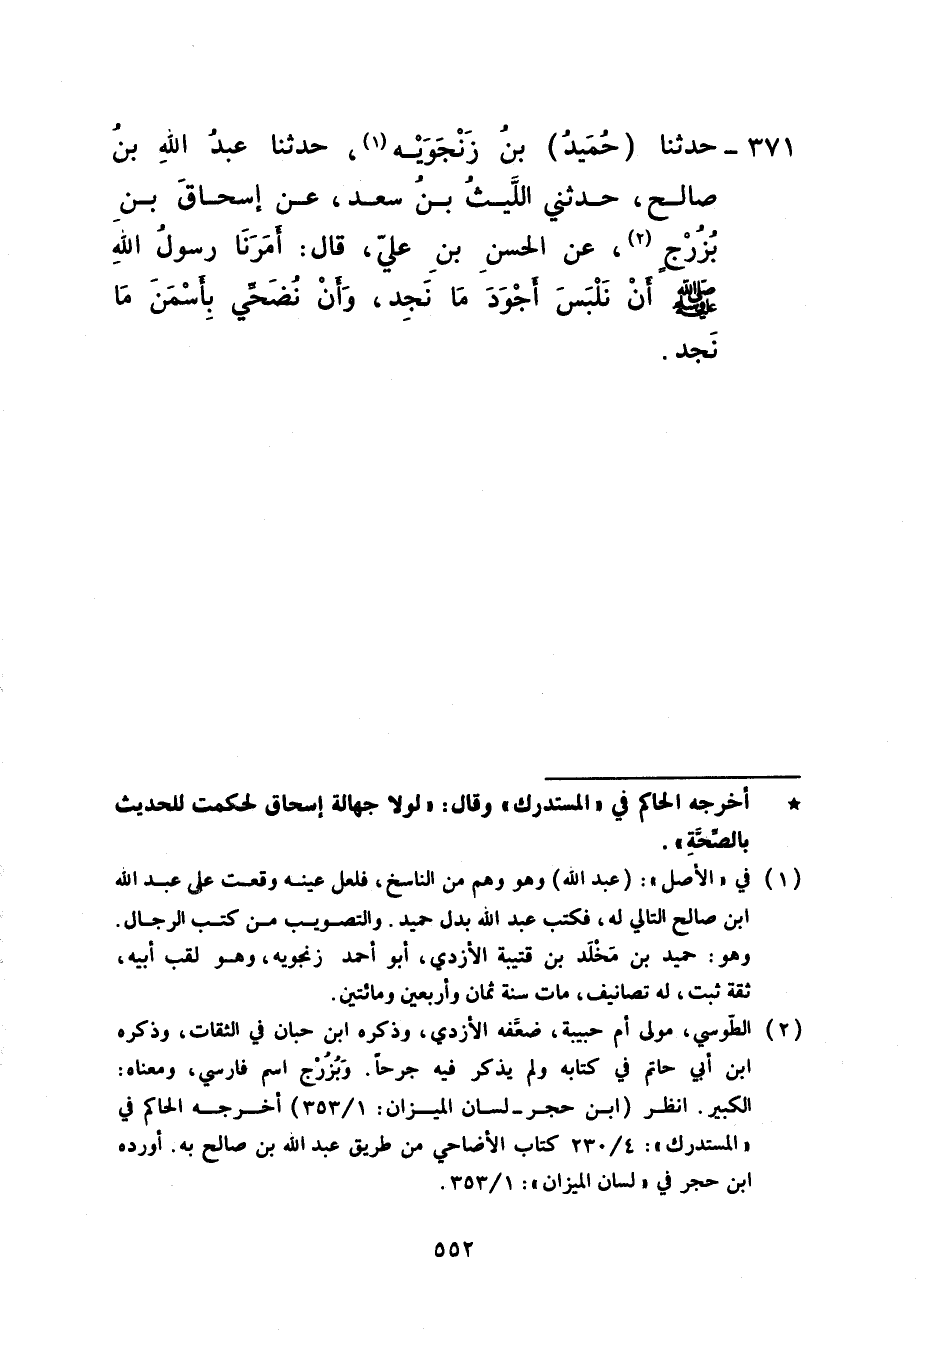 ٣٧١ ـ حدثنا (حُمَيدُ) بنُ زَنْجَوَيْه (١)، حدثنا عبدُ اللهِ بنُ
صالح، حدثني اللَّيثُ بنُ سعد، عن إسحاقَ بنِ
بُزُرْجٍ (٢)، عن الحسنِ بنِ عليّ، قال: أَمَرَنَا رسولُ اللهِ
ﷺ أَنْ نَلْبَسَ أَجْوَدَ مَا نَجِد، وَأَنْ نُضَحِّي بِأَسْمَنَ مَا
نَجِد.
★ أخرجه الحاكم في «المستدرك» وقال: «لولا جهالة إسحاق لحكمت للحديث
بالصِّحَّةِ».
(١) في «الأصل»: (عبد الله) وهو وهم من الناسخ، فلعل عينه وقعت على عبد الله
ابن صالح التالي له، فكتب عبد الله بدل حميد. والتصويب من كتب الرجال.
وهو: حميد بن مَخْلَد بن قتيبة الأزدي، أبو أحمد زنجويه، وهو لقب أبيه،
ثقة ثبت، له تصانيف، مات سنة ثمان وأربعين ومائتين.
(٢) الطّوسي، مولى أم حبيبة، ضعَّفه الأزدي، وذكره ابن حبان في الثقات، وذكره
ابن أبي حاتم في كتابه ولم يذكر فيه جرحاً. وَبُزُرْج اسم فارسي، ومعناه:
الكبير. انظر (ابن حجر ـ لسان الميزان: ٣٥٣/١) أخرجه الحاكم في
«المستدرك»: ٢٣٠/٤ كتاب الأضاحي من طريق عبد الله بن صالح به. أورده
ابن حجر في «لسان الميزان»: ٣٥٣/١.
٥٥٢